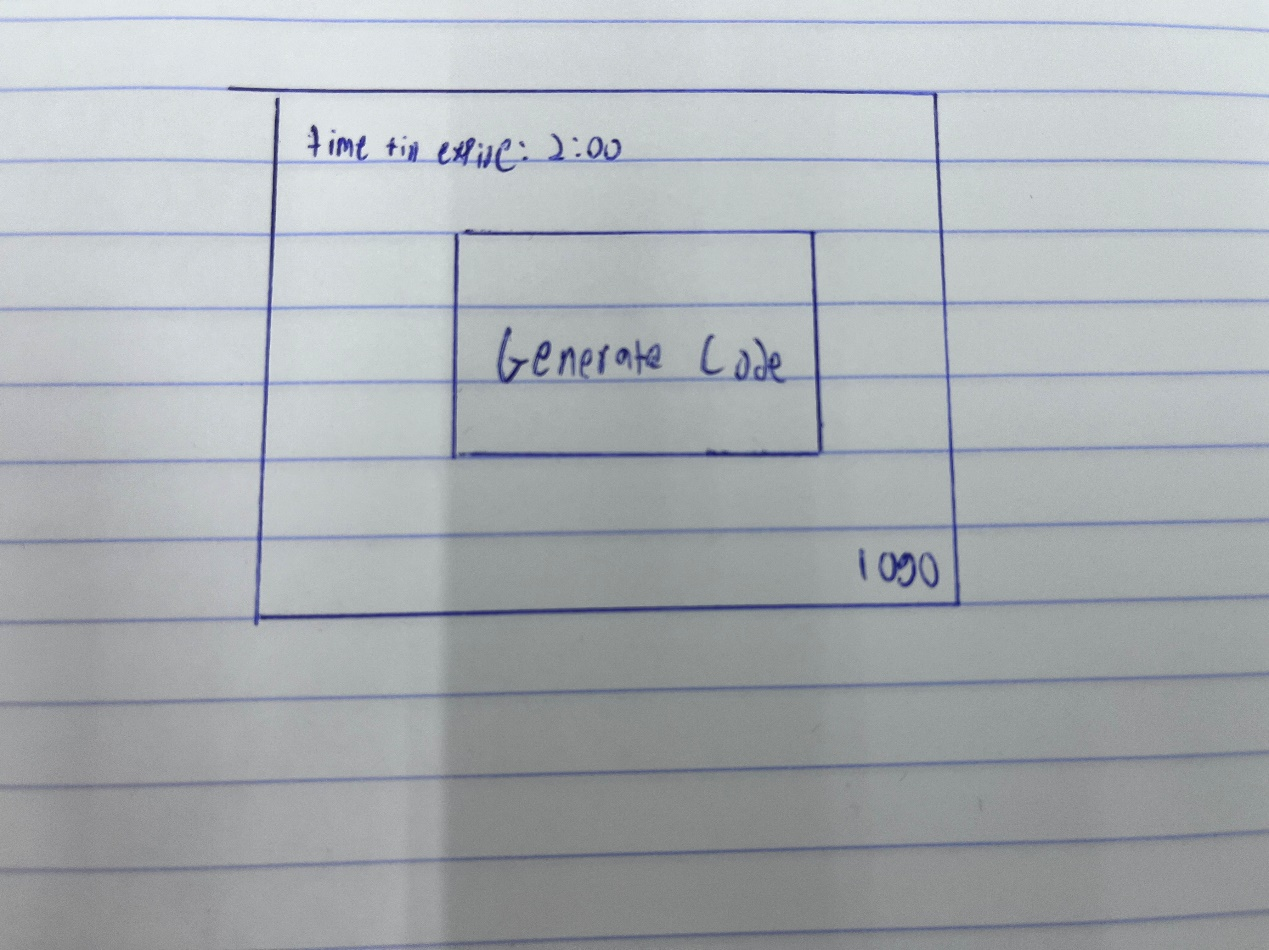 time till expire: 2:00
Generate Code
logo